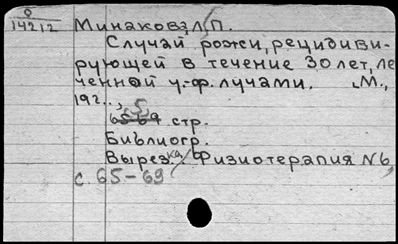 0
14212
Минакова, Л. П.
Случай рожи, рецидиви-
рующей в течение 30 лет, ле
ченной у.-ф. лучами. М.,
192..,
5
65-69 стр.
Библиогр.
Вырезка. Физиотерапия N6,
с. 65-69